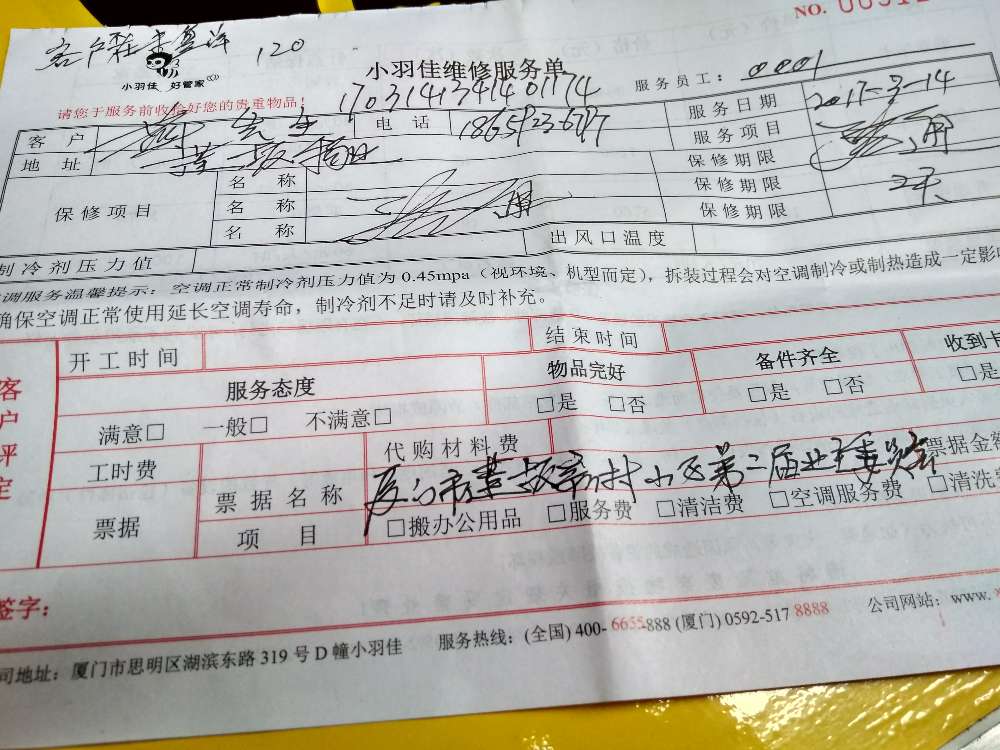 NO.
120
小羽佳 好管家
小羽佳维修服务单
服务员工： 0001
请您于服务前收给好您的贵重物品！
1703141341401174
客户 先生 电话 服务日期 2017-3-14
地址 服务项目
保修项目 名称 保修期限
名称 保修期限
名称 保修期限
制冷剂压力值 出风口温度
调服务温馨提示：空调正常制冷剂压力值为 0.45mpa（视环境、机型而定），拆装过程会对空调制冷或制热造成一定影
确保空调正常使用延长空调寿命，制冷剂不足时请及时补充。
客户评定
开工时间 结束时间
服务态度 物品完好 备件齐全 收到卡
满意□ 一般□ 不满意□ □是 □否 □是 □否 □是
工时费 代购材料费 票据金额
票据 票据名称 厦门市 新村小区第二届业主委员会
项目 □搬办公用品 □服务费 □清洁费 □空调服务费 □清洗
签字：
司地址：厦门市思明区湖滨东路 319 号 D 幢小羽佳 服务热线：(全国) 400-6655-888 (厦门) 0592-517 8888 公司网站：www.